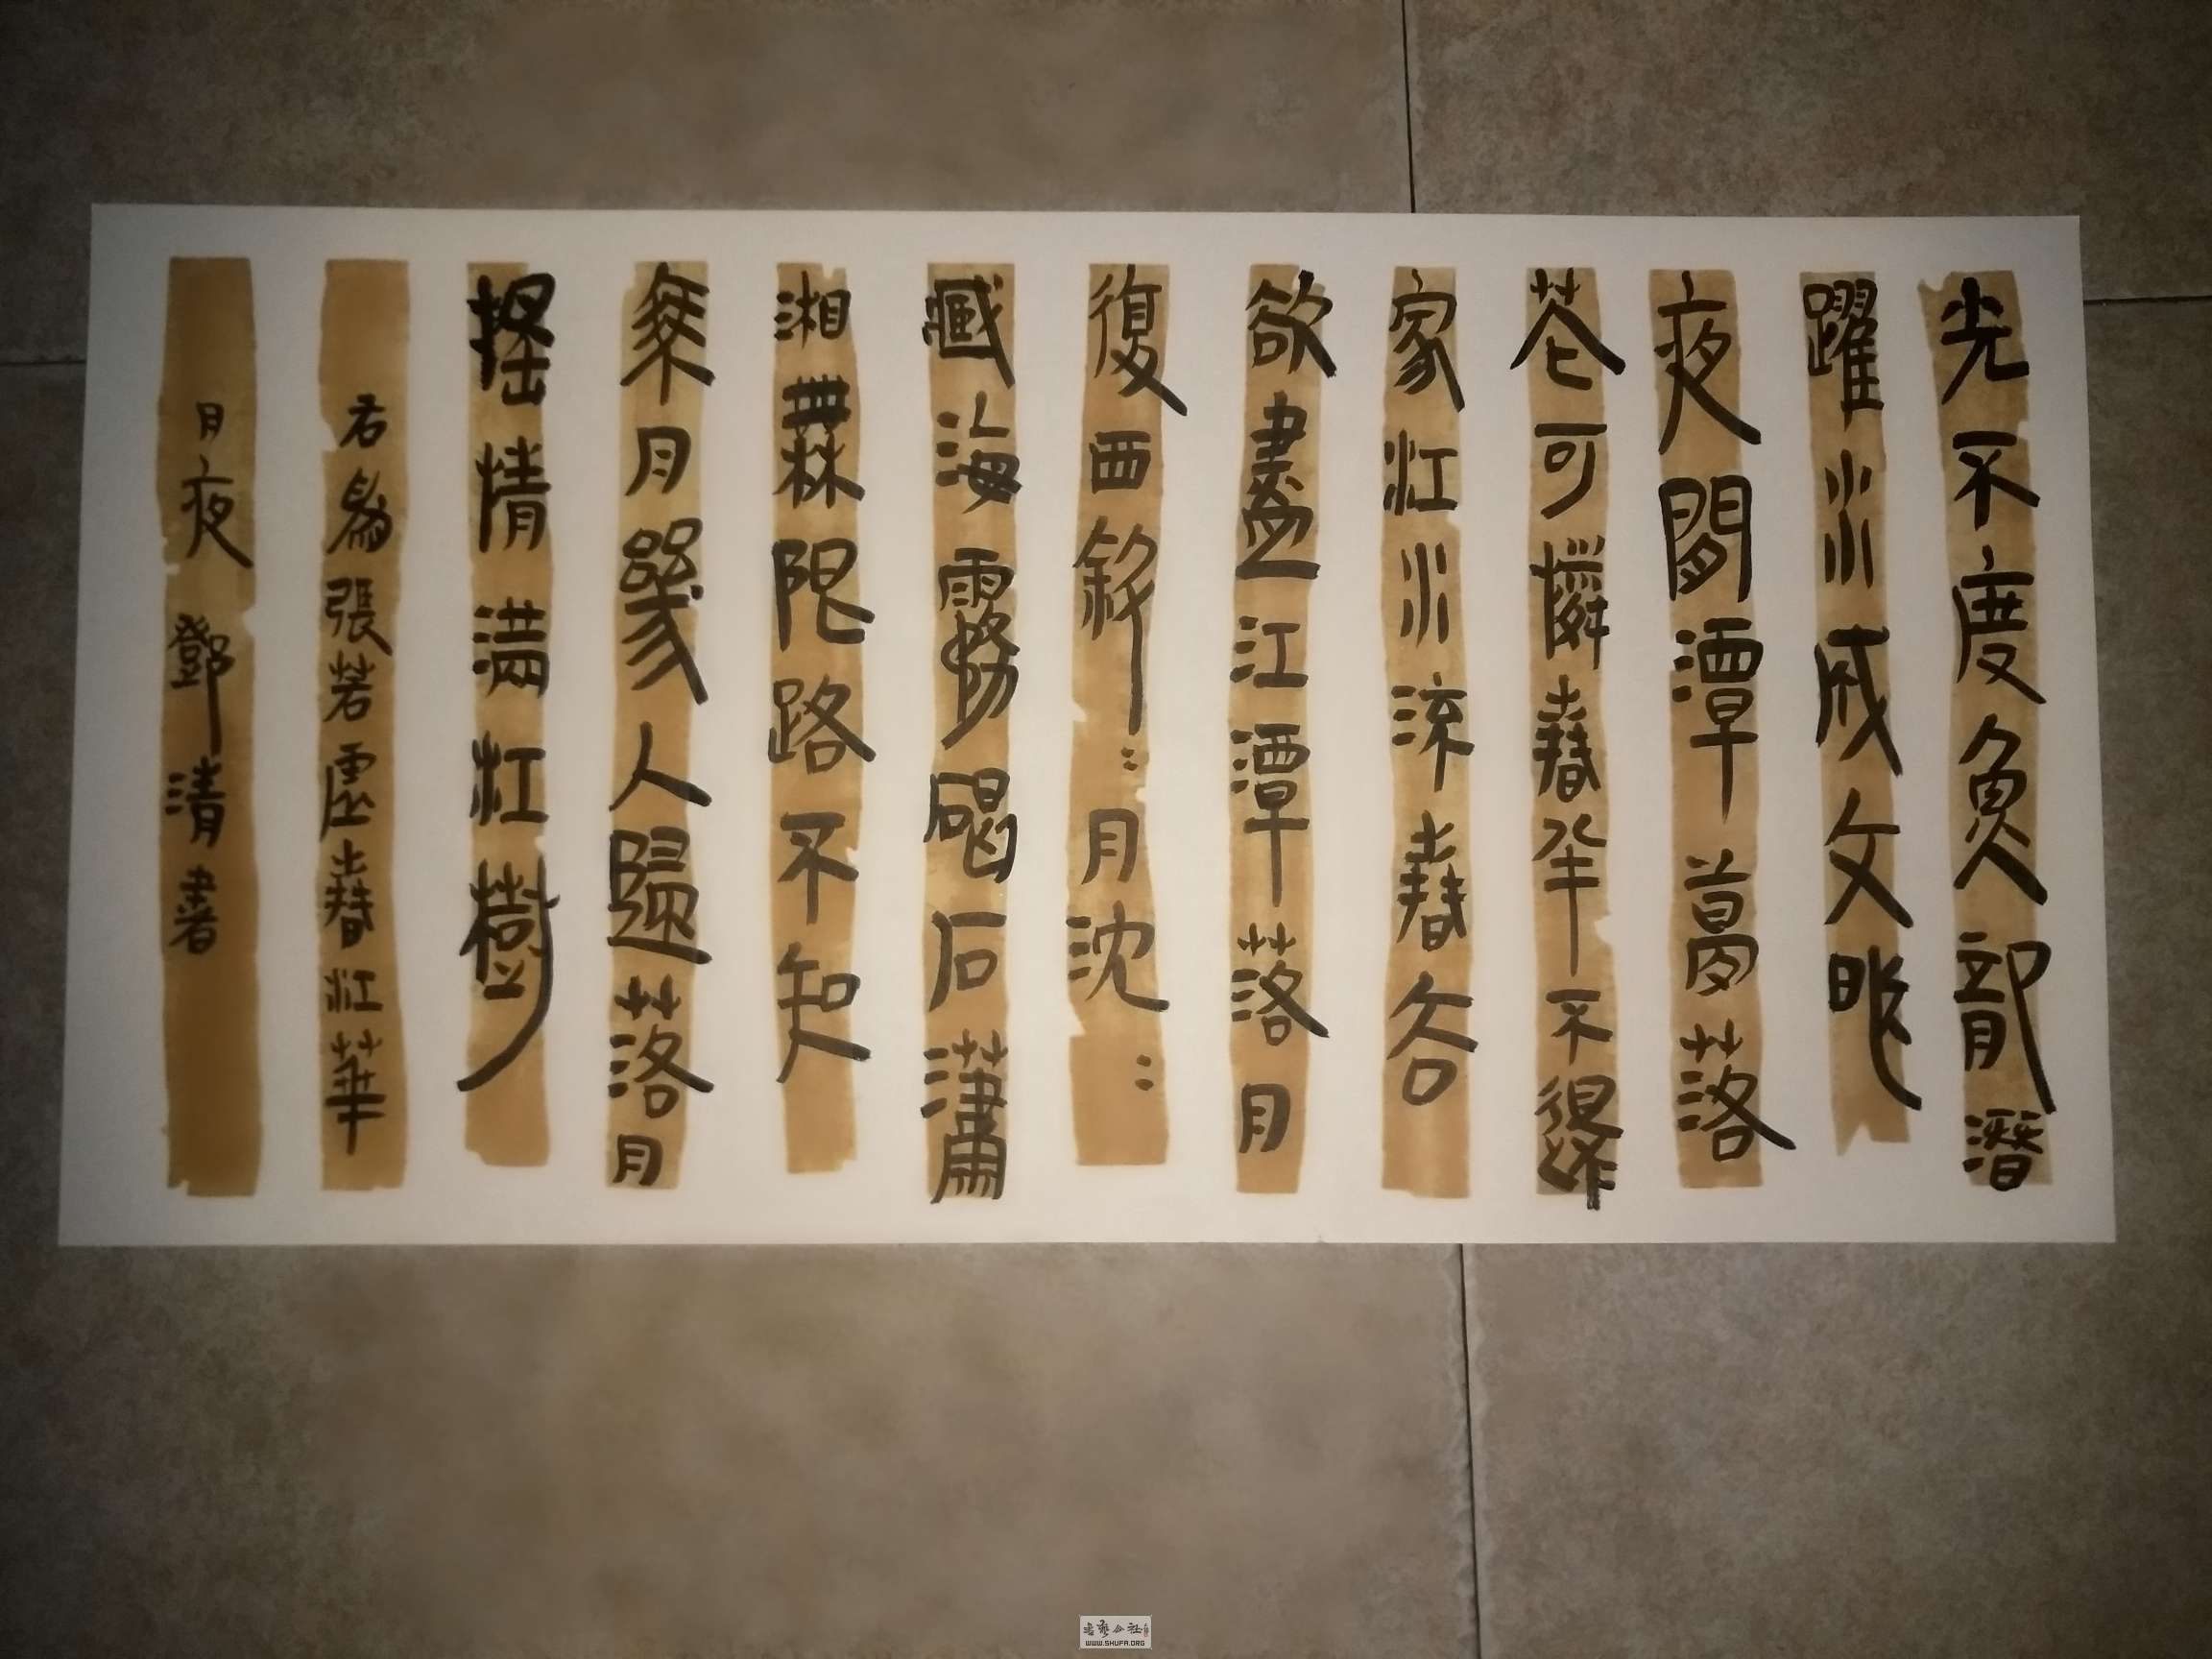 光不度魚龍潛
躍水成文昨
夜閒潭夢落
花可憐春半不還
家江水流春去
欲盡江潭落月
復西斜：月沈：
藏海霧碣石瀟
湘無限路不知
乘月幾人歸落月
搖情滿江樹
右為張若虛春江華
月夜 鄧清書
WWW.SHUFA.ORG